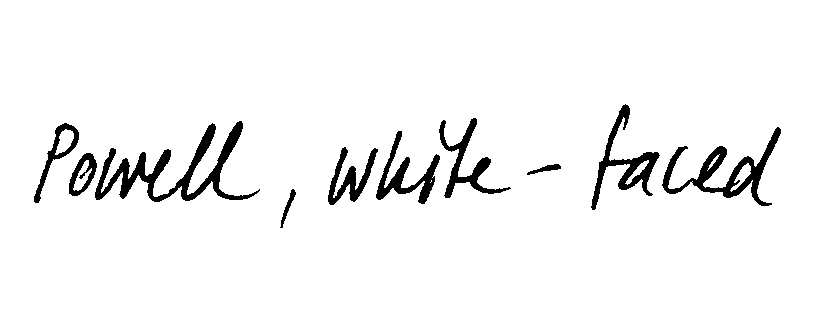 Powell, white-faced